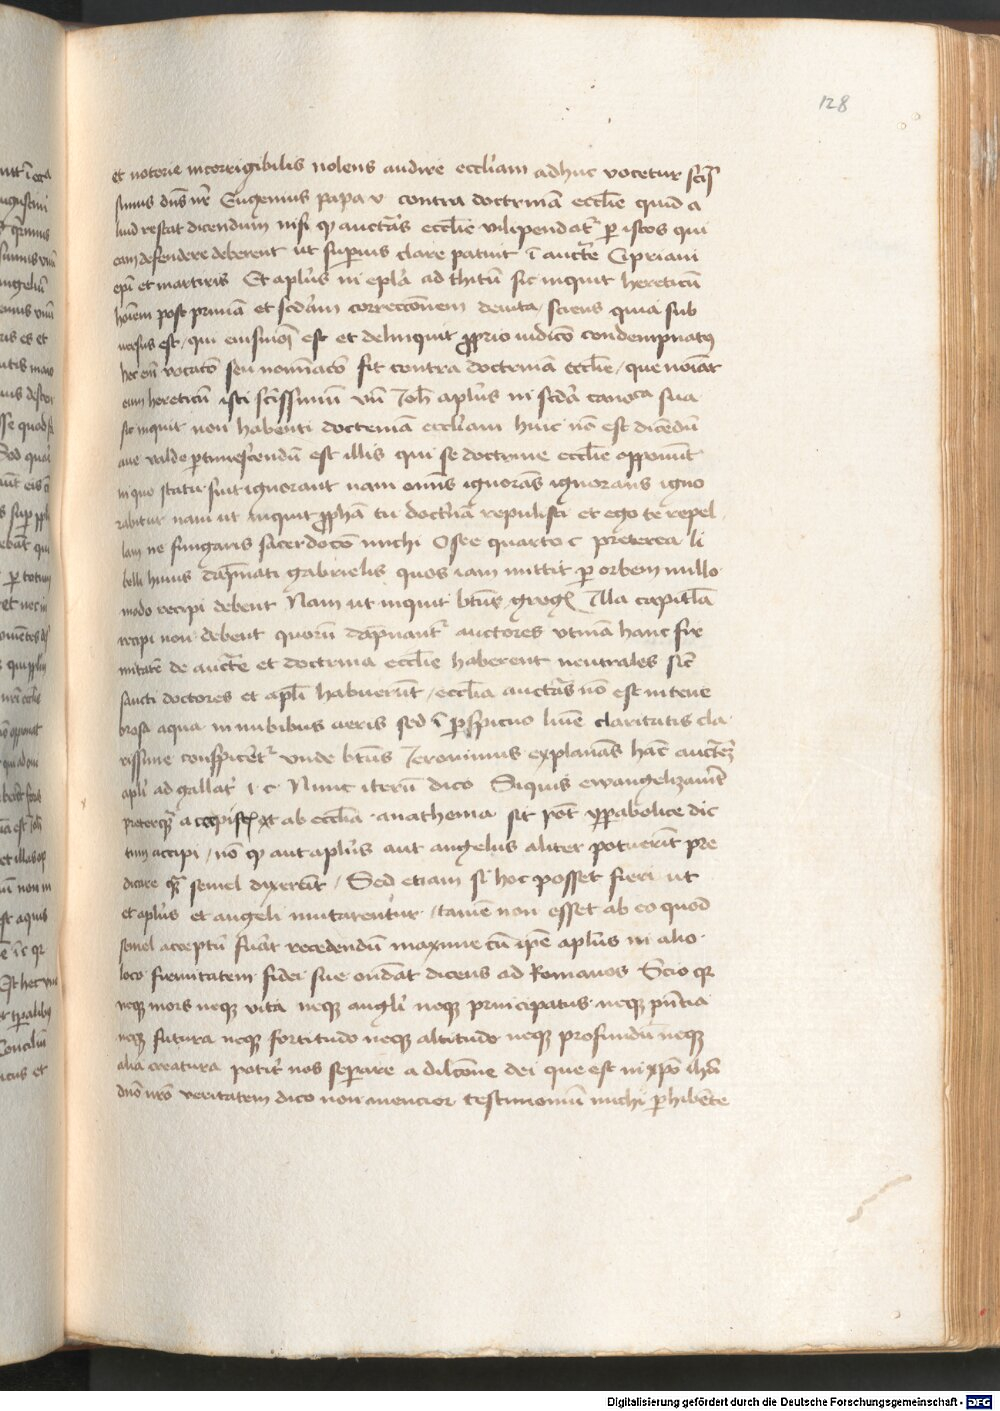 128
et notorie incorrigibilis nolens audire eccliam adhuc vocetur scis
simus dns nr Eugenius papa v contra doctrinam ecclie quid a
liud restat dicendum nisi qz auctas ecclie vilipendatr p istos qui
eam defendere deberent ut superius clare patuit i aucte Cipriani
epi et martiris Et aplus in epla ad thitu sic inquit hereticu
hoiem post prima et scdam correcconem deuita sciens quia sub
uersus est / qui eiusmoi est et delinquit pprio iudico condempnatus
hec eni vocaco seu nominaco fit contra doctrina ecclie / que noiat
eum hereticu isti scissimu vn Joh aplus in scda canoca sua
sic inquit non habenti doctrinam ecclia huic no est dicedu
aue valde ptimescendu est illis qui se doctrine ecclie opponut
in quo statu sint ignorant nam omis ignoras ignorans igno
rabitur nam ut inquit ppha tu doctrina repulisti et ego te repel
lam ne fungaris sacerdoco michi Osee quarto c preterea li
belli huius dapnati gabrielis quos iam mittit p orbem nullo
modo recipi debent Nam ut inquit btus grego Illa capitla
recipi non debent quoru dapnantr auctores vtina hanc fir
mitate de aucte et doctrina ecclie haberent neutrales sic
sancti doctores et apli habuerut / ecclia auctas no est in tene
brosa aqua in nubibus aeris sed i pspicuo lumie claritatis cla
rissime conspicetr vnde btus Jeronimus explanas hac aucte
apli ad gallat 1 c Nunc iteru dico Siquis ewangelizauit
preterqz accepistis et ab ecclia anathema sit pot yparabolice dic
tum accipi / no qz aut aplus aut angelus aliter potuerit pre
dicare qz semel dixerut / Sed etiam si hoc posset fieri ut
et aplus et angeli mutarentur / tame non esset ab eo quod
semel acceptu fuat recedendu maxime cu ipe aplus in alio
loco firmitatem fidei sue ondat dicens ad Romanos Scio qz
neqz mors neqz vita neqz angli neqz principatus neqz pntia
neqz futura neqz fortitudo neqz altitudo neqz profundu neqz
alia creatura potit nos separare a dilcone dei que est in xpo ihu
dno nro veritatem dico non mencior testimoniu michi phibete
Digitalisierung gefördert durch die Deutsche Forschungsgemeinschaft - DFG